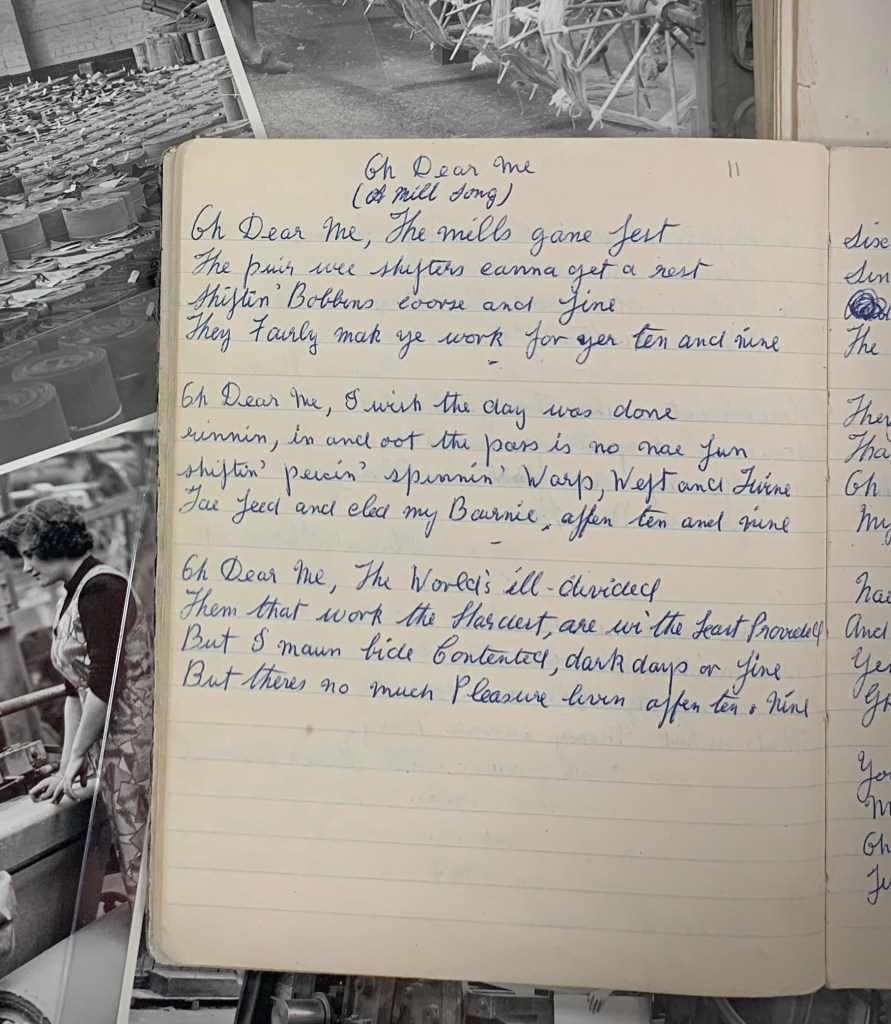 Oh Dear Me
11
(A Mill Song)
Oh Dear Me, The mills gane fest
The puir wee shifters canna get a rest
Shiftin' Bobbins coorse and fine
They Fairly mak ye work for yer ten and nine
Oh Dear Me, I wish the day was done
rinnin, in and oot the pass is no nae fun
shiftin' peicin' spinnin' Warp, Weft and Twine
Tae feed and cled my Bairnie, affen ten and nine
Oh Dear Me, The World's ill-divided
Them that work the Hardest, are wi the least Provided
But I maun bide Contented, dark days or fine
But theres no much Pleasure livin affen ten & Nine
The
They
Tha
Oh
My
nae
And
Yer
Yo
M
Oh